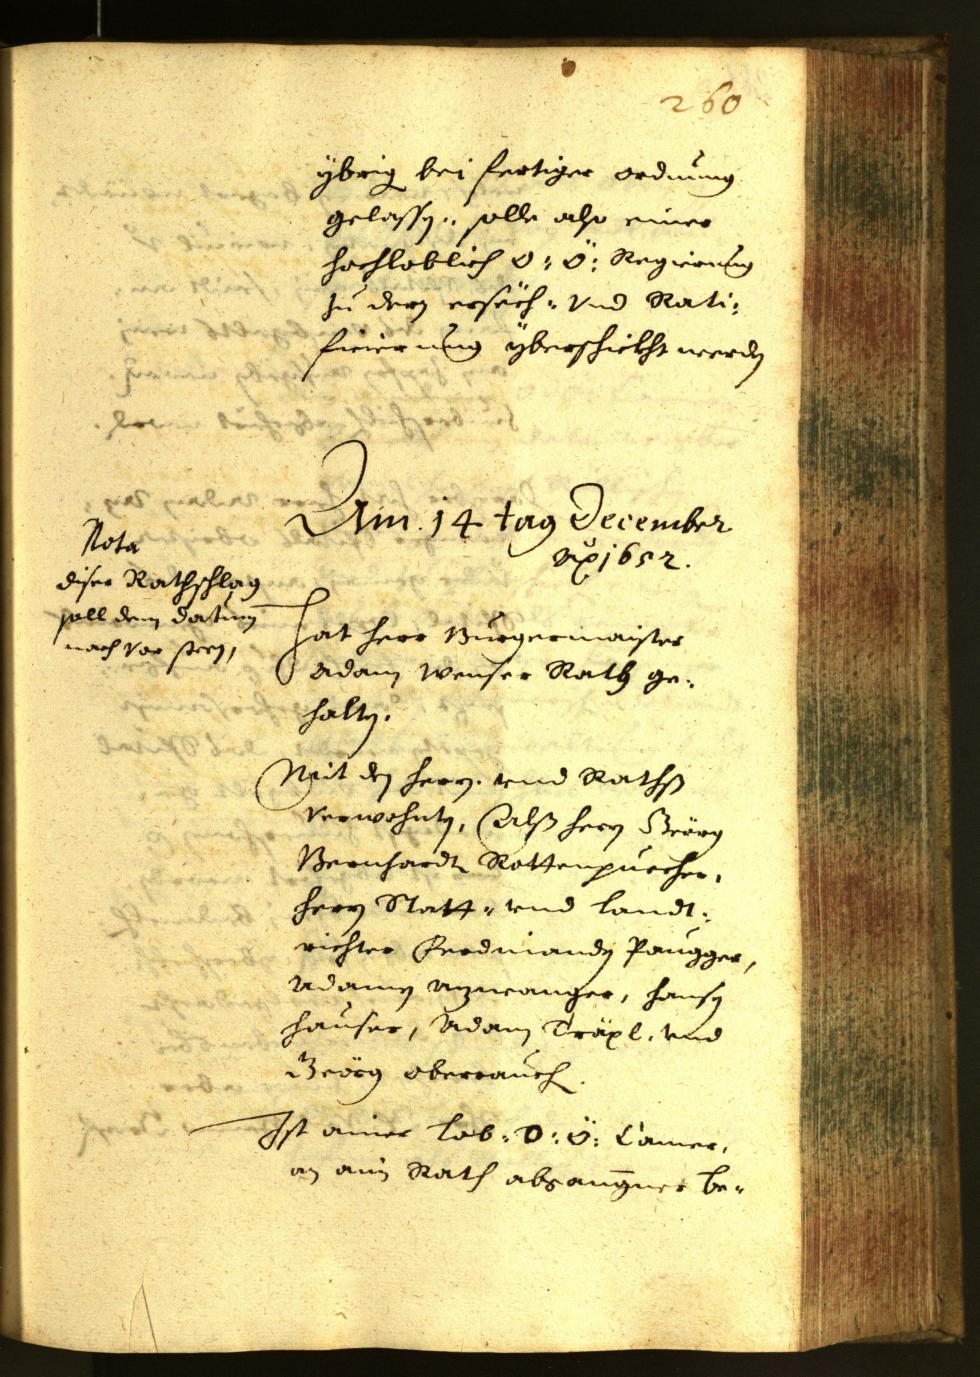 260
ybrig bei fertiger ordnung
gelassen, solle also einer
hochloblich O: Ö: Regierung
zu dern ersech- vnd Rati-
ficierung yberschickht werden
Am 14 tag December
Ao 1652.
Nota
diser Rathschlag
soll dem datum
nach vor steen,
Hat herr Burgermaister
Adam Wenser Rath ge-
halten.
Mit den herrn vnd Raths
verwohnten, Alß herrn Georg
Bernhardt Rottenpuecher,
herrn Statt- vnd landt-
richter Ferdinanden Paugger,
Adamen Azwanger, Hansen
Hauser, Adam Träxl, vnd
Georg Oberrauch.
Ist ainer Lob: O: Ö: Camer,
an ain Rath abgangner be-